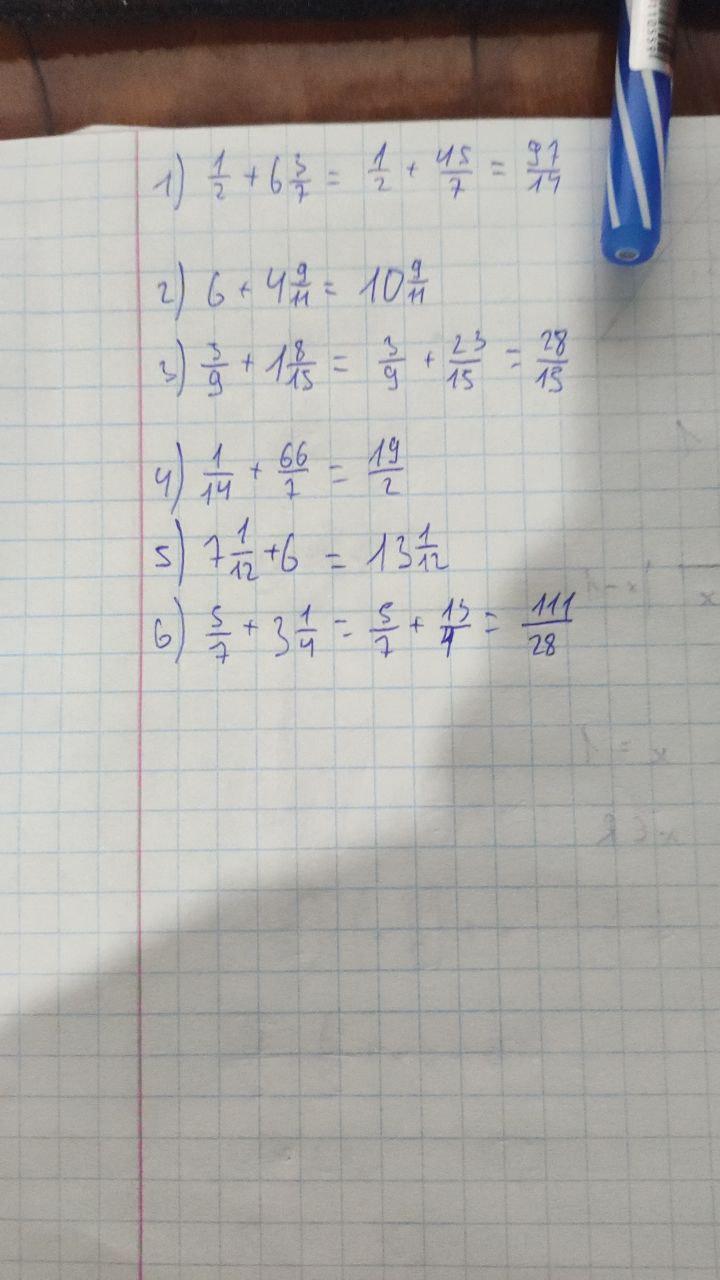 1) 1/2 + 6 3/7 = 1/2 + 45/7 = 97/14
2) 6 + 4 9/11 = 10 9/11
3) 3/9 + 1 8/15 = 3/9 + 23/15 = 28/15
4) 1/14 + 66/7 = 19/2
5) 7 1/12 + 6 = 13 1/12
6) 5/7 + 3 1/4 = 5/7 + 13/4 = 111/28